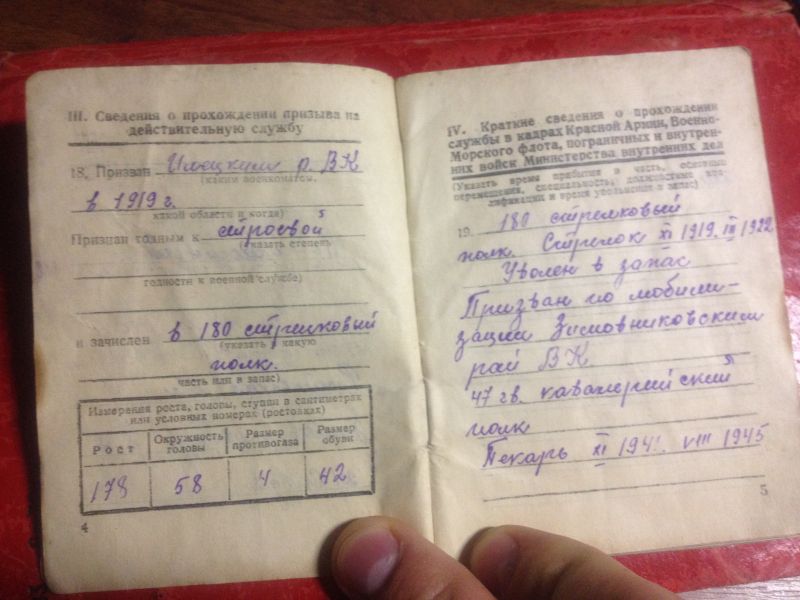 III. Сведения о прохождении призыва на
действительную службу
18. Призван Илецким р. ВК
(каким военкоматом,
в 1919 г.
какой области и когда)
Признан годным к строевой
(указать степень
годности к военной службе)
и зачислен в 180 стрелковый
(указать в какую
полк.
часть или в запас)
Измерения роста, головы, ступни в сантиметрах
или условных номерах (ростовках)
Рост Окружность головы Размер противогаза Размер обуви
178 58 4 42
4
IV. Краткие сведения о прохождении
службы в кадрах Красной Армии, Военно-
Морского флота, пограничных и внутрен-
них войск Министерства внутренних дел
(Указать время прибытия в часть, основные
перемещения, специальность, должностные ква-
лификации и время увольнения в запас)
19. 180 стрелковый
полк. Стрелок XI 1919. III 1922
Уволен в запас
Призван по мобили-
зации Зимовниковским
рай ВК
47 гв. кавалерийский
полк
Пекарь XI 194 VIII 1945
5